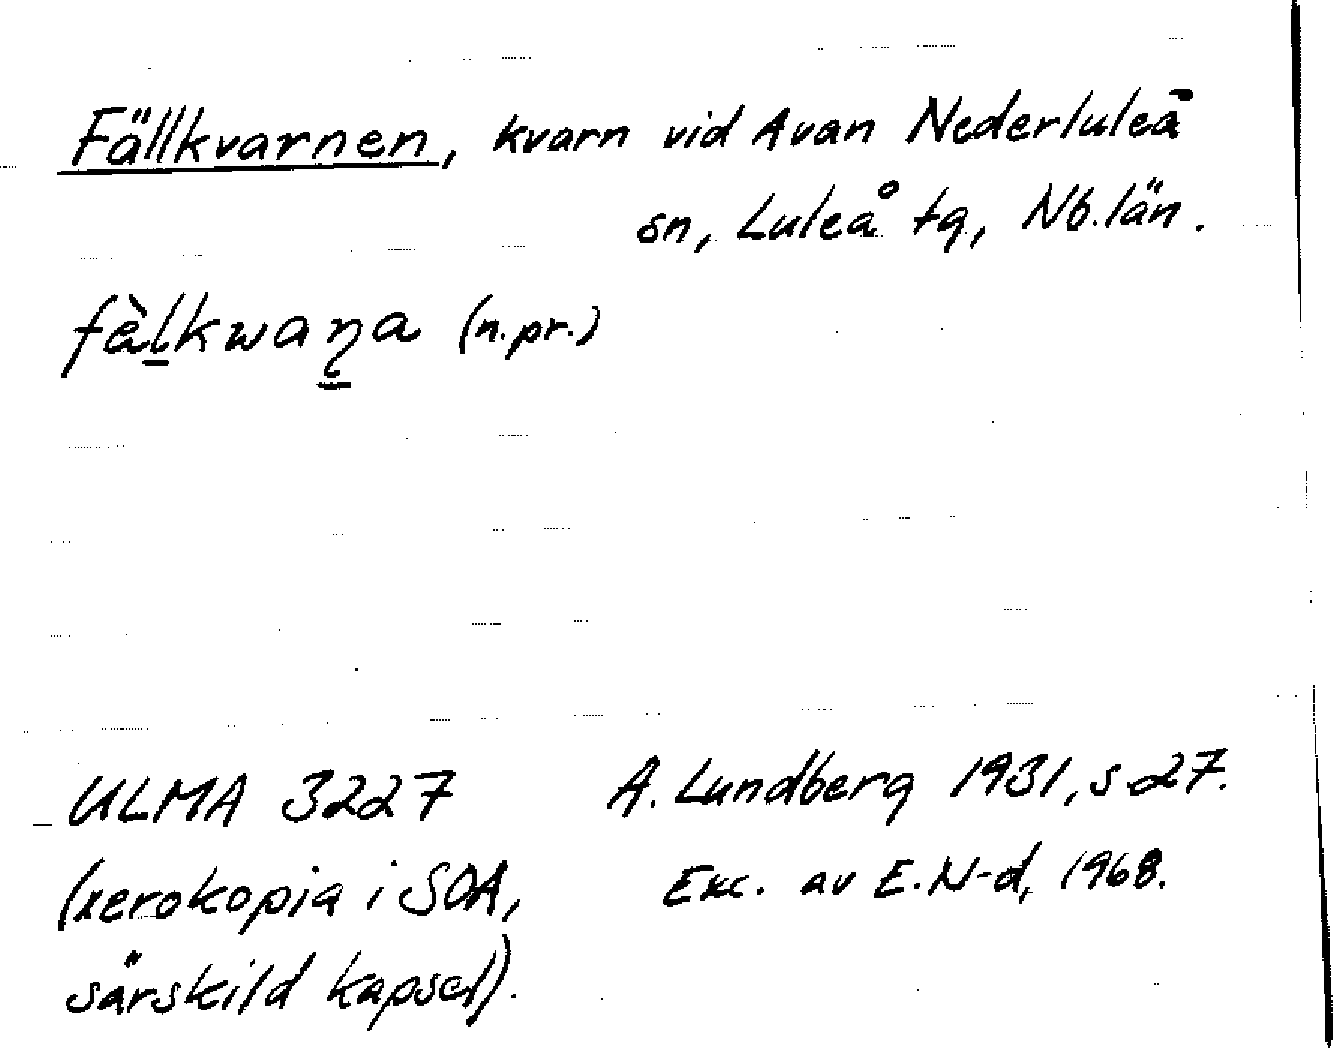 Fällkvarnen, kvarn vid Avan Nederluleå
sn, Luleå tg, Nb. län.
fὲl̲kwaɳ̲a (n.pr.)
ULMA 3227 A. Lundberg 1931, s 27.
(xerokopia i SOA, Exc. av E. N-d, 1968.
särskild kapsel).